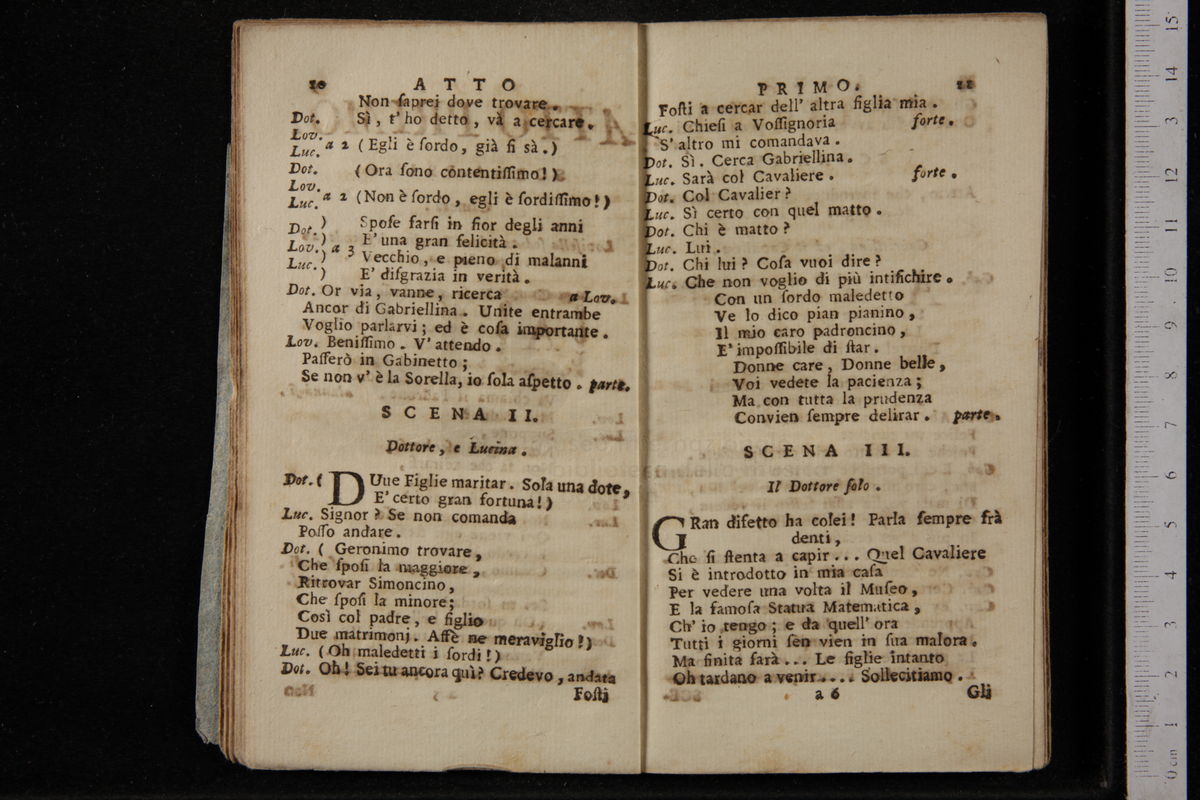 10 ATTO
Non saprei dove trovare.
Dot. Sì, t' ho detto, và a cercare.
Lov.
Luc. a 2 (Egli è sordo, già si sà.)
Dot. (Ora sono contentissimo!)
Lov.
Luc. a 2 (Non è sordo, egli è sordissimo!)
Dot. ) Spose farsi in fior degli anni
Lov. ) a 3 E' una gran felicità.
Luc. ) Vecchio, e pieno di malanni
) E' disgrazia in verità.
Dot. Or via, vanne, ricerca a Lov.
Ancor di Gabriellina. Unite entrambe
Voglio parlarvi; ed è cosa importante.
Lov. Benissimo. V' attendo.
Passerò in Gabinetto;
Se non v' è la Sorella, io sola aspetto. parte.
SCENA II.
Dottore, e Lucina.
Dot. ( DUue Figlie maritar. Sola una dote,
E' certo gran fortuna!)
Luc. Signor? Se non comanda
Posso andare.
Dot. ( Geronimo trovare,
Che sposi la maggiore,
Ritrovar Simoncino,
Che sposi la minore;
Così col padre, e figlio
Due matrimonj. Affè ne meraviglio!)
Luc. (Oh maledetti i sordi!)
Dot. Oh! Sei tu ancora quì? Credevo, andata
Fosti
PRIMO. 11
Fosti a cercar dell' altra figlia mia.
Luc. Chiesi a Vossignoria forte.
S' altro mi comandava.
Dot. Sì. Cerca Gabriellina.
Luc. Sarà col Cavaliere. forte.
Dot. Col Cavalier?
Luc. Sì certo con quel matto.
Dot. Chi è matto?
Luc. Lui.
Dot. Chi lui? Cosa vuoi dire?
Luc. Che non voglio di più intisichire.
Con un sordo maledetto
Ve lo dico pian pianino,
Il mio caro padroncino,
E' impossibile di star.
Donne care, Donne belle,
Voi vedete la pacienza;
Ma con tutta la prudenza
Convien sempre delirar. parte.
SCENA III.
Il Dottore solo.
GRan difetto ha colei! Parla sempre frà
denti,
Che si stenta a capir... Quel Cavaliere
Si è introdotto in mia casa
Per vedere una volta il Museo,
E la famosa Statua Matematica,
Ch' io tengo; e da quell' ora
Tutti i giorni sen vien in sua malora.
Ma finita farà... Le figlie intanto
Oh tardano a venir.... Sollecitiamo.
a 6 Gli
0 cm 1 2 3 4 5 6 7 8 9 10 11 12 13 14 15